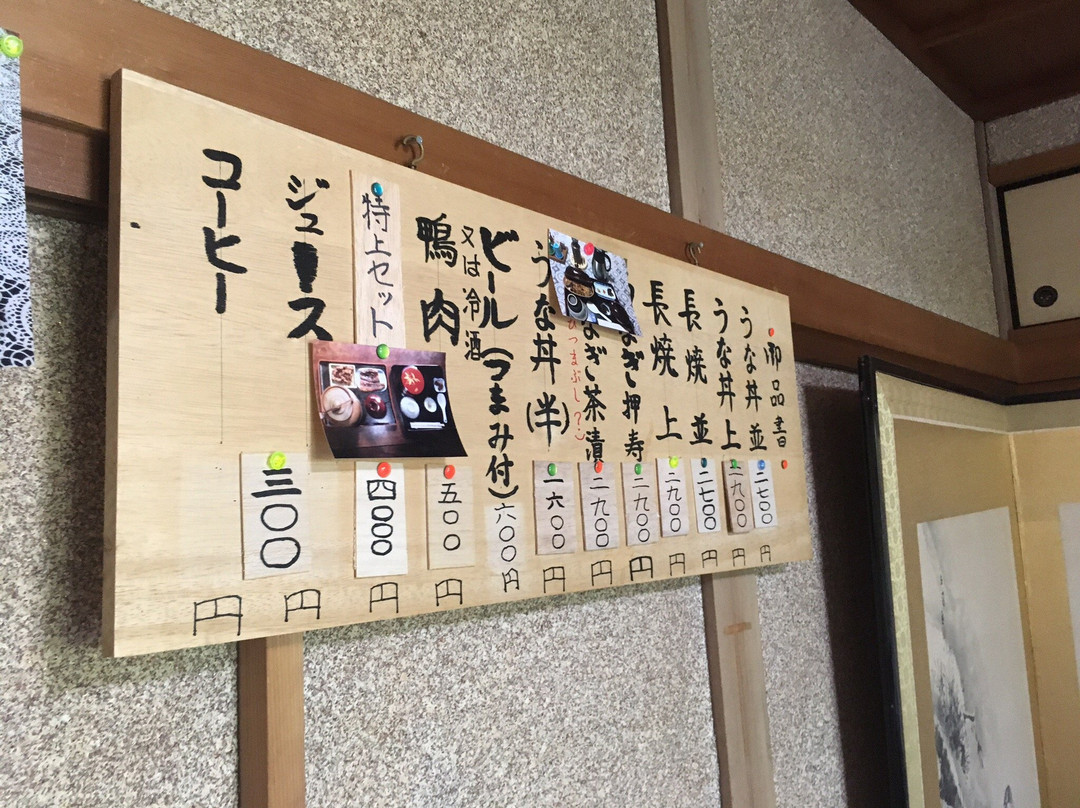 御品書
うな丼並 二七〇〇円
うな丼上 二九〇〇円
長焼並 二七〇〇円
長焼上 二九〇〇円
なぎ押寿 二九〇〇円
なぎ茶漬 二九〇〇円
ひつまぶし?
うな丼(半) 一六〇〇円
ビール(つまみ付) 六〇〇円
又は冷酒
鴨肉 五〇〇円
特上セット 四〇〇〇円
ジュース 三〇〇円
コーヒー 円